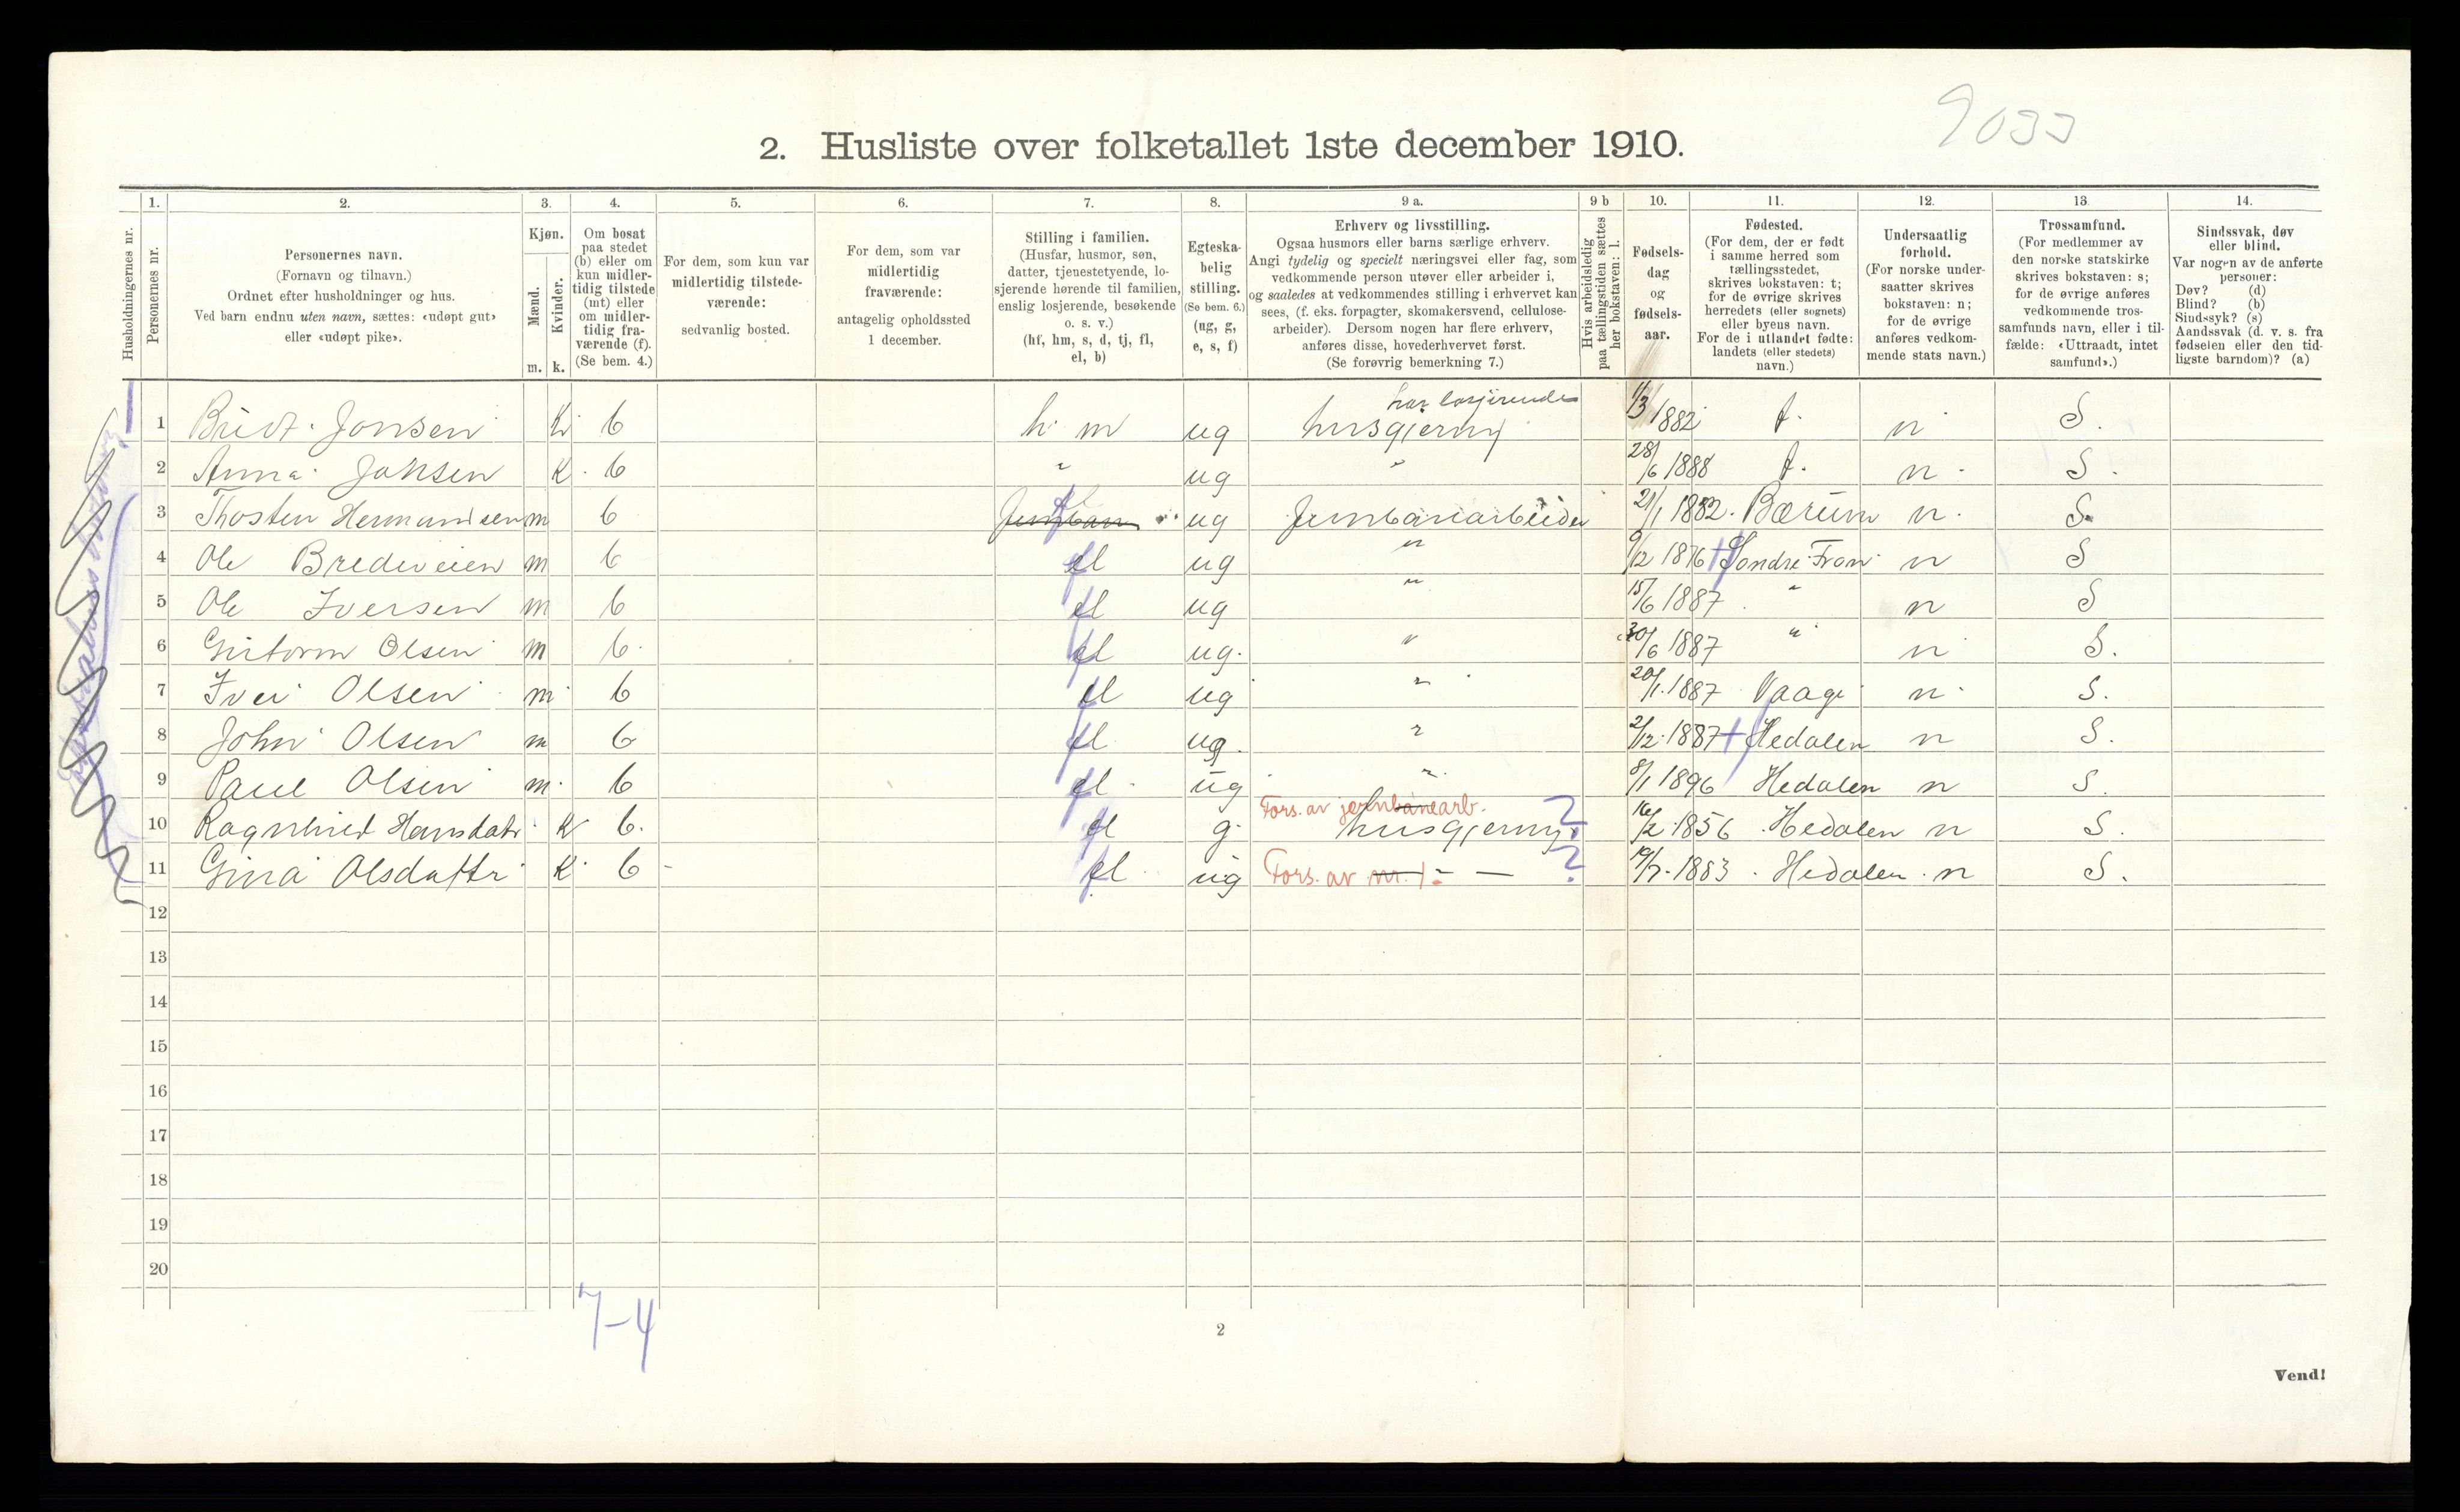 9033
2. Husliste over folketallet 1ste december 1910.
Husholdningernes nr.
1. Personernes nr.
2. Personernes navn.
(Fornavn og tilnavn.)
Ordnet efter husholdninger og hus.
Ved barn endnu uten navn, sættes: «udøpt gut»
eller «udøpt pike».
3. Kjøn.
Mænd. m.
Kvinder. k.
4. Om bosat
paa stedet
(b) eller om
kun midler-
tidig tilstede
(mt) eller
om midler-
tidig fra-
værende (f).
(Se bem. 4.)
5. For dem, som kun var
midlertidig tilstede-
værende:
sedvanlig bosted.
6. For dem, som var
midlertidig
fraværende:
antagelig opholdssted
1 december.
7. Stilling i familien.
(Husfar, husmor, søn,
datter, tjenestetyende, lo-
sjerende hørende til familien,
enslig losjerende, besøkende
o. s. v.)
(hf, hm, s, d, tj, fl,
el, b)
8. Egteska-
belig
stilling.
(Se bem. 6.)
(ug, g,
e, s, f)
9 a. Erhverv og livsstilling.
Ogsaa husmors eller barns særlige erhverv.
Angi tydelig og specielt næringsvei eller fag, som
vedkommende person utøver eller arbeider i,
og saaledes at vedkommendes stilling i erhvervet kan
sees, (f. eks. forpagter, skomakersvend, cellulose-
arbeider). Dersom nogen har flere erhverv,
anføres disse, hovederhvervet først.
(Se forøvrig bemerkning 7.)
9 b Hvis arbeidsledig
paa tællingstiden sættes
her bokstaven: l.
10. Fødsels-
dag
og
fødsels-
aar.
11. Fødested.
(For dem, der er født
i samme herred som
tællingsstedet,
skrives bokstaven: t;
for de øvrige skrives
herredets (eller sognets)
eller byens navn.
For de i utlandet fødte:
landets (eller stedets)
navn.)
12. Undersaatlig
forhold.
(For norske under-
saatter skrives
bokstaven: n;
for de øvrige
anføres vedkom-
mende stats navn.)
13. Trossamfund.
(For medlemmer av
den norske statskirke
skrives bokstaven: s;
for de øvrige anføres
vedkommende tros-
samfunds navn, eller i til-
fælde: «Uttraadt, intet
samfund».)
14. Sindssvak, døv
eller blind.
Var nogen av de anførte
personer:
Døv? (d)
Blind? (b)
Sindssyk? (s)
Aandssvak (d. v. s. fra
fødselen eller den tid-
ligste barndom)? (a)
har losjirende
1 Bridt Jonsen K b h m ug husgjerny 1/3 1882 t. n S.
2 Anna Johsen K b " ug " 28/6 1888 t. n S.
3 Thosten Hermandsen m b Jernban el ug Jernbanearbeider 21/1 1882 Bærum n S.
4 Ole Bredeveien m b el ug " 9/12 1876 Søndre Fron n S
5 Ole Iversen m b el ug " 15/6 1887 " n S
6 Gutorm Olsen m b el ug " 30/6 1887 " n S.
7 Iver Olsen m b el ug " 20/1 1887 Vaage n S.
8 John Olsen m b el ug " 2/12 1887 Hedalen n S.
9 Paul Olsen m b el ug " 8/1 1896 Hedalen n S.
Fors. av jernbanearb.
10 Ragnhild Hansdatr K b el g husgjerny ? 16/2 1856 Hedalen n S.
11 Gina Olsdattr K b el ug Fors. av nr. 1. — ? 19/7 1883 Hedalen n S.
12
13
14
15
16
17
18
19
20
7-4
2
Vend!